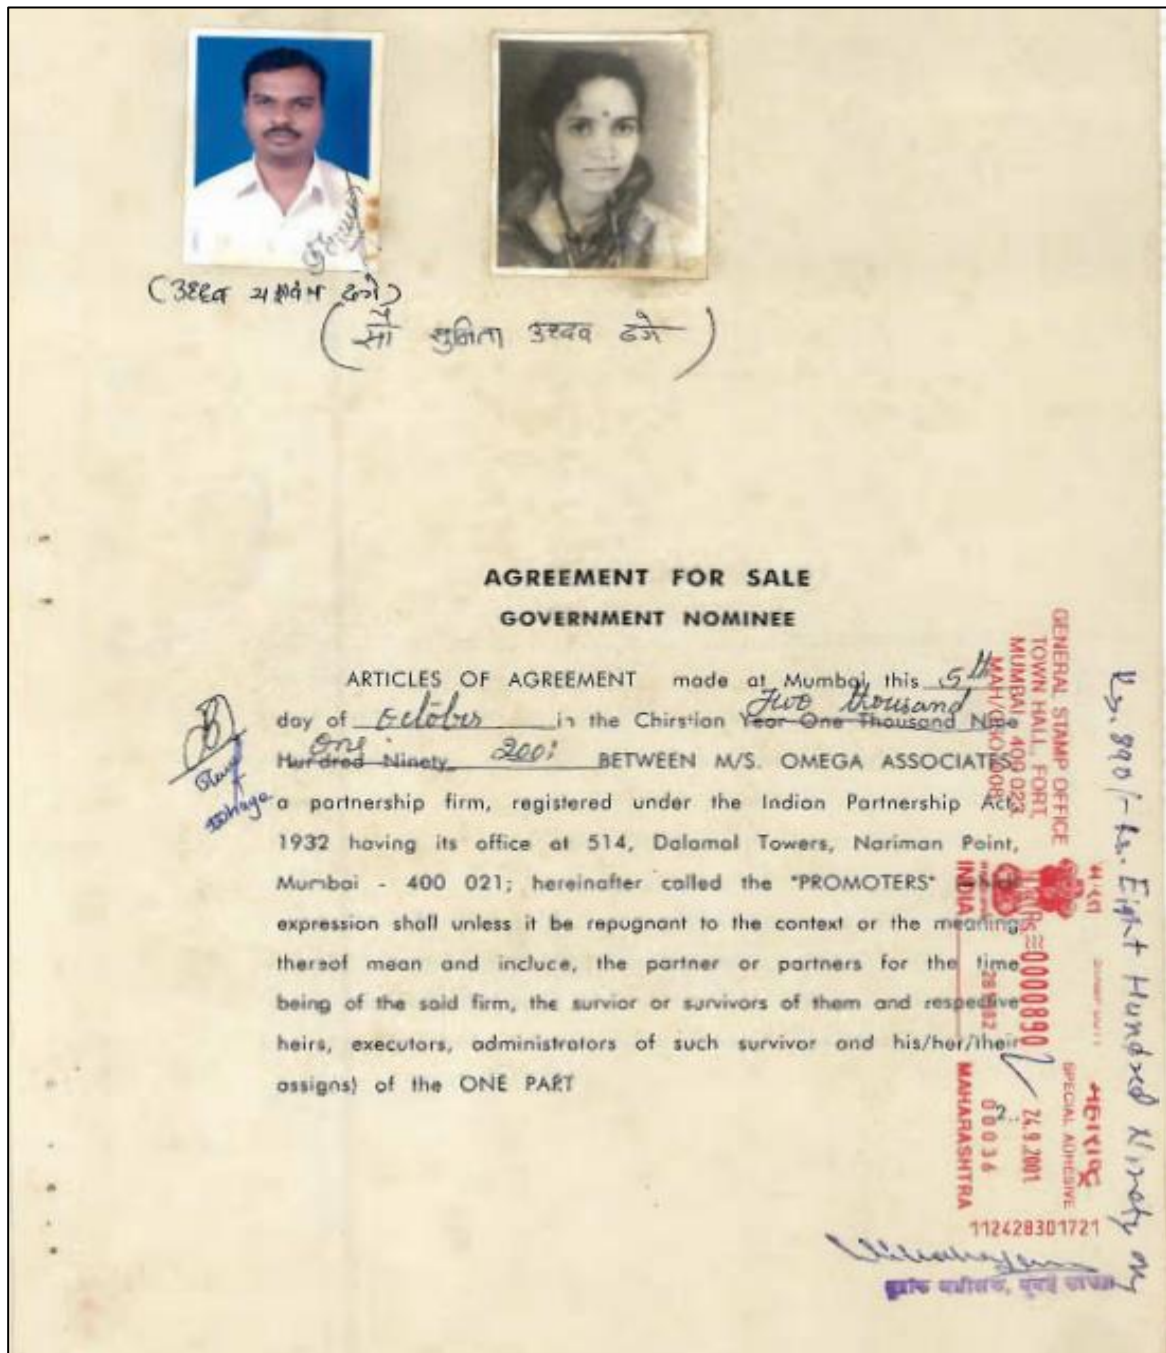 (उध्दव यशवंत ढगे)
(सौ सुनिता उध्दव ढगे)
AGREEMENT FOR SALE
GOVERNMENT NOMINEE
ARTICLES OF AGREEMENT made at Mumbai, this 5th
Two thousand
day of October in the Chirstian Year One Thousand Nine
One
Hundred Ninety 2001 BETWEEN M/S. OMEGA ASSOCIATES,
a partnership firm, registered under the Indian Partnership Act,
1932 having its office at 514, Dalamal Towers, Nariman Point,
Mumbai - 400 021; hereinafter called the "PROMETERS"
expression shall unless it be repugnant to the context or the meaning
thereof mean and incluce, the partner or partners for the time
being of the said firm, the survior or survivors of them and respective
heirs, executors, administrators of such survivor and his/her/their
assigns) of the ONE PART
2..
GENERAL STAMP OFFICE
TOWN HALL, FORT,
MUMBAI - 400 023
INDIA
Rs.≈0000890
SPECIAL ADHESIVE
24.9.2001
00036
MAHARASHTRA
महाराष्ट्र
112428301721
Rs. 890/- Rs. Eight Hundred Ninety only